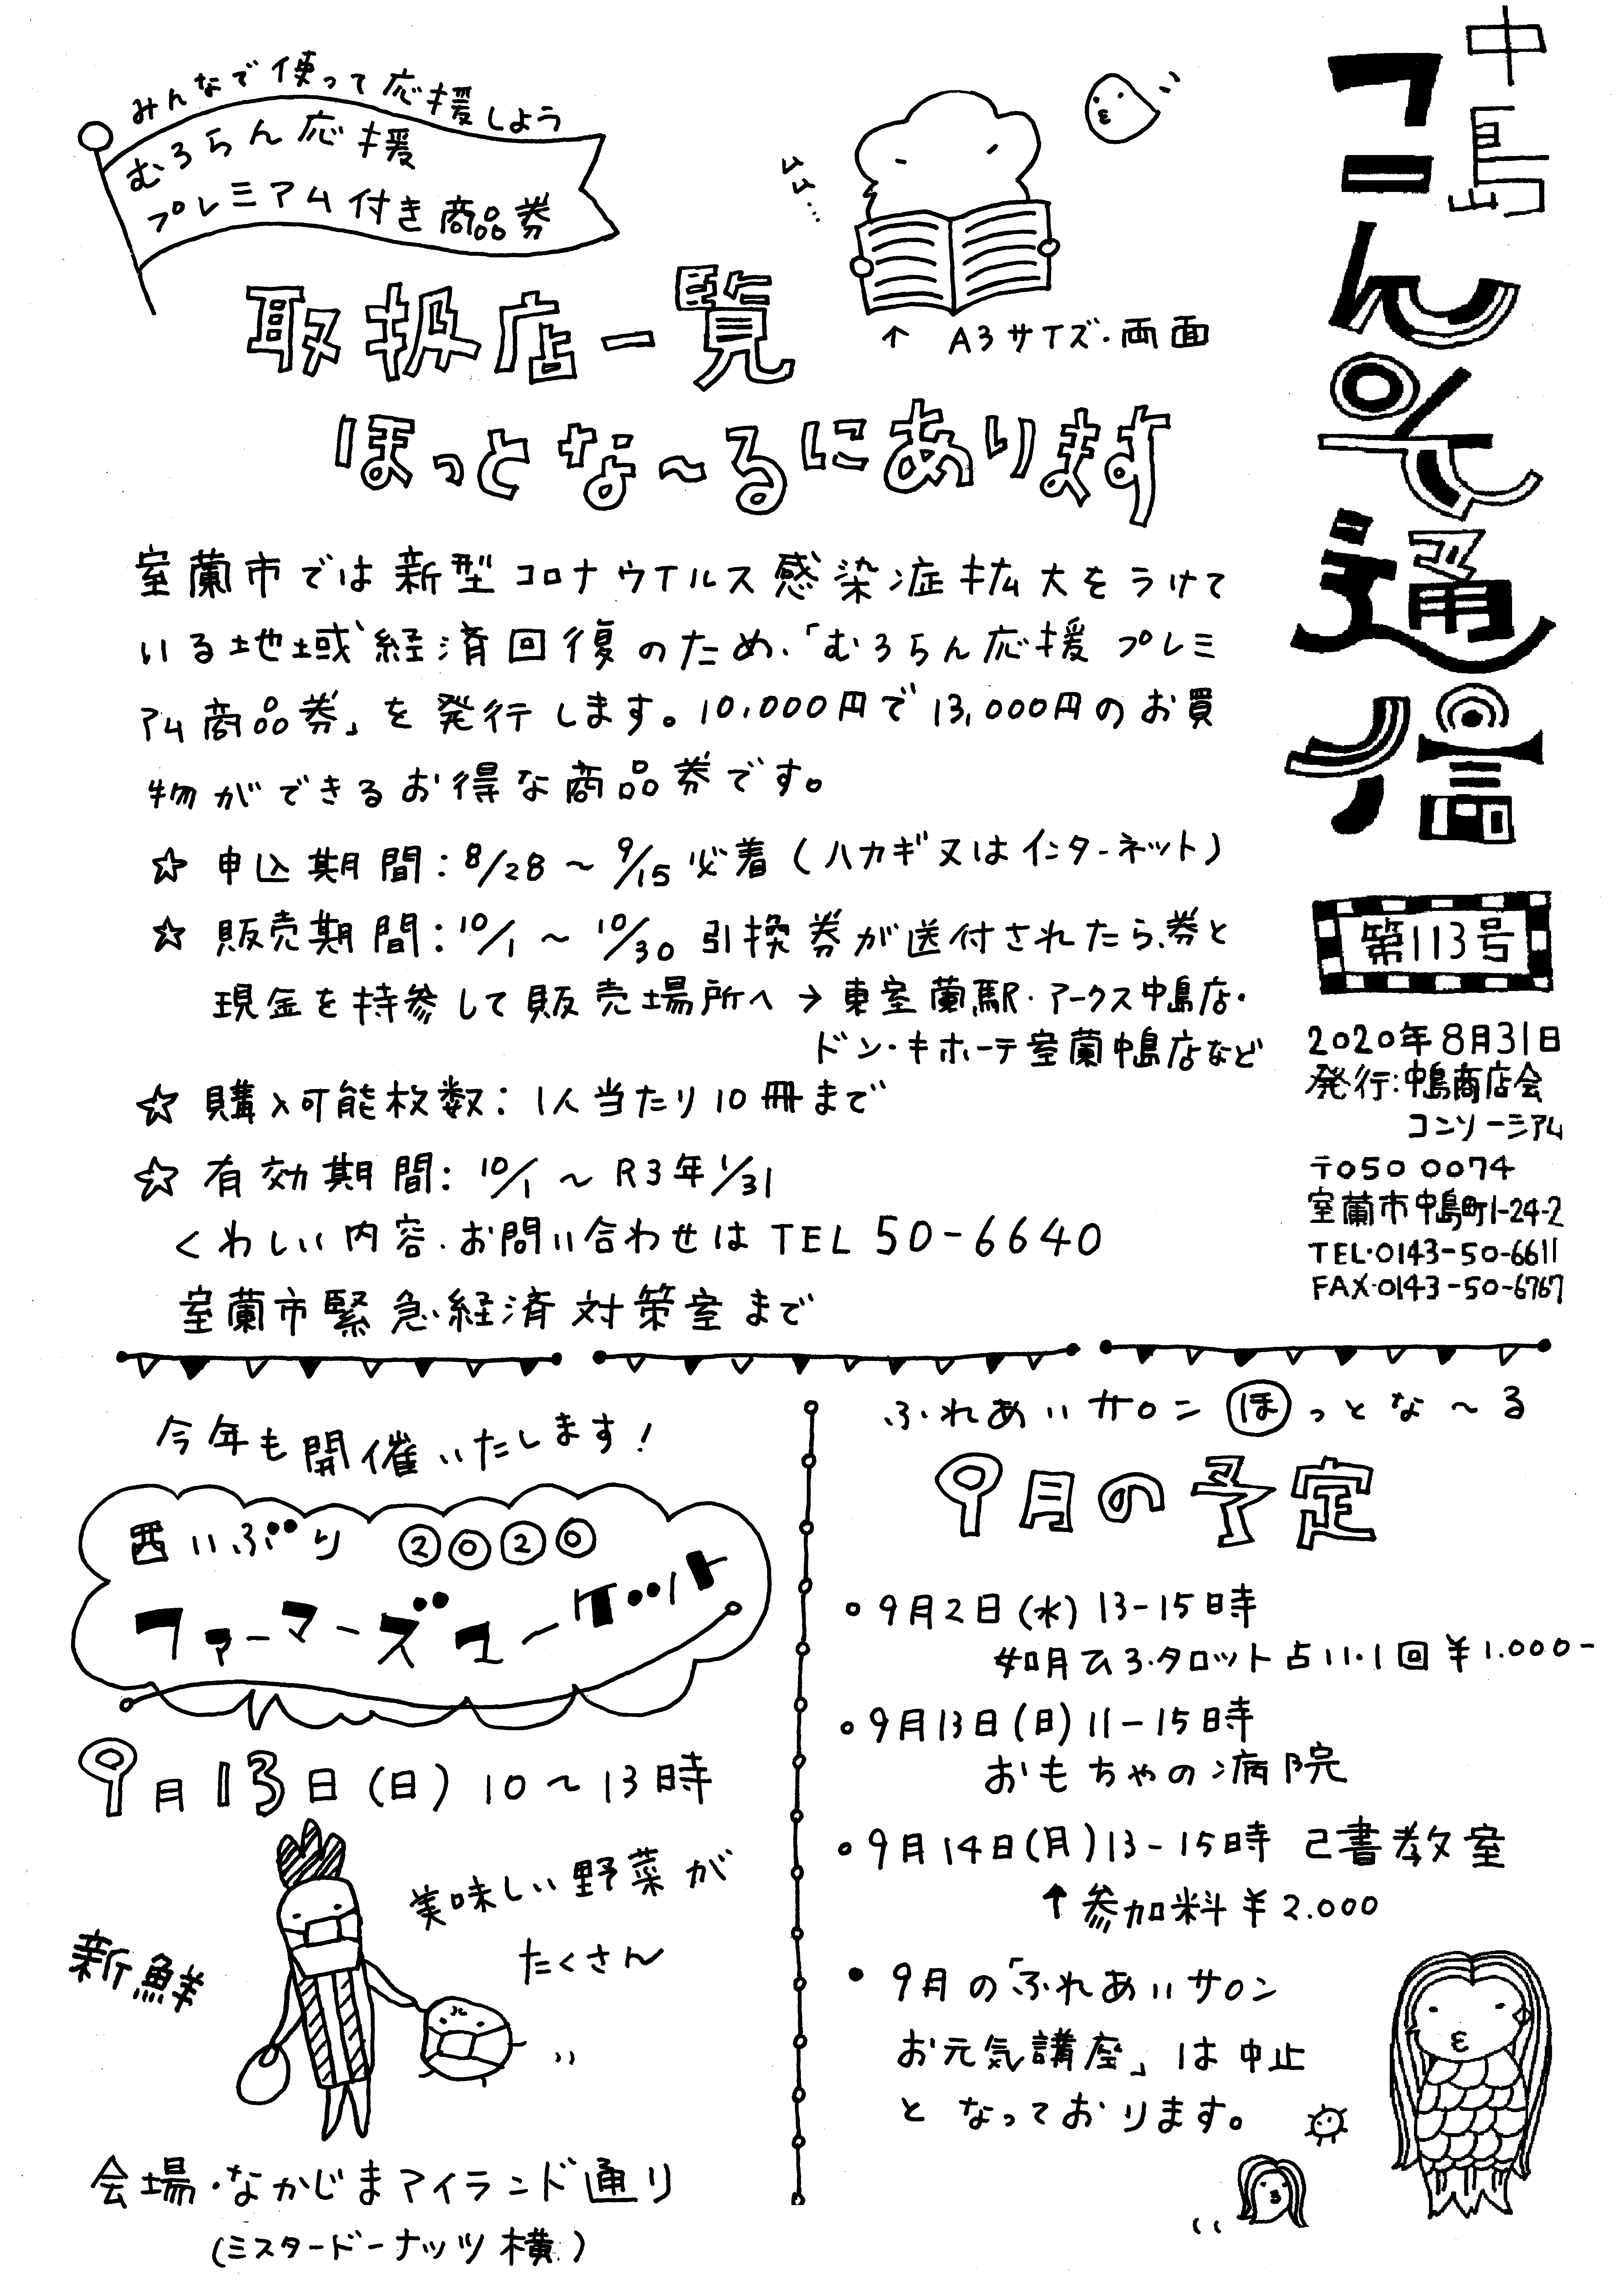 中島
コンそ通信
第113号
2020年8月31日
発行:中島商店会
コンソーシアム
〒050 0074
室蘭市中島町1-24-2
TEL・0143-50-6611
FAX・0143-50-6767
みんなで使って応援しよう
むろらん応援
プレミアム付き商品券
ムム…
↑ A3サイズ・両面
取扱店一覧
ほっとな〜るにあります
室蘭市では新型コロナウイルス感染症拡大をうけて
いる地域経済回復のため、「むろらん応援 プレミ
アム商品券」を発行します。10,000円で13,000円のお買
物ができるお得な商品券です。
☆ 申込期間:8/28〜9/15必着(ハガキ又はインターネット)
☆ 販売期間:10/1〜10/30 引換券が送付されたら、券と
現金を持参して販売場所へ→東室蘭駅・アークス中島店・
ドン・キホーテ室蘭中島店など
☆ 購入可能枚数:1人当たり10冊まで
☆ 有効期間:10/1〜R3年1/31
くわしい内容・お問い合わせはTEL 50-6640
室蘭市緊急経済対策室まで
今年も開催いたします!
西いぶり 2020
ファーマーズマーケット
9月13日(日)10〜13時
美味しい野菜が
たくさん
新鮮
会場・なかじまアイランド通り
(ミスタードーナッツ横)
ふれあいサロン ほっとな〜る
9月の予定
○9月2日(水)13-15時
如月ひろ・タロット占い・1回¥1.000-
○9月13日(日)11-15時
おもちゃの病院
○9月14日(月)13-15時 己書教室
↑参加料¥2.000
● 9月の「ふれあいサロン
お元気講座」は中止
となっております。